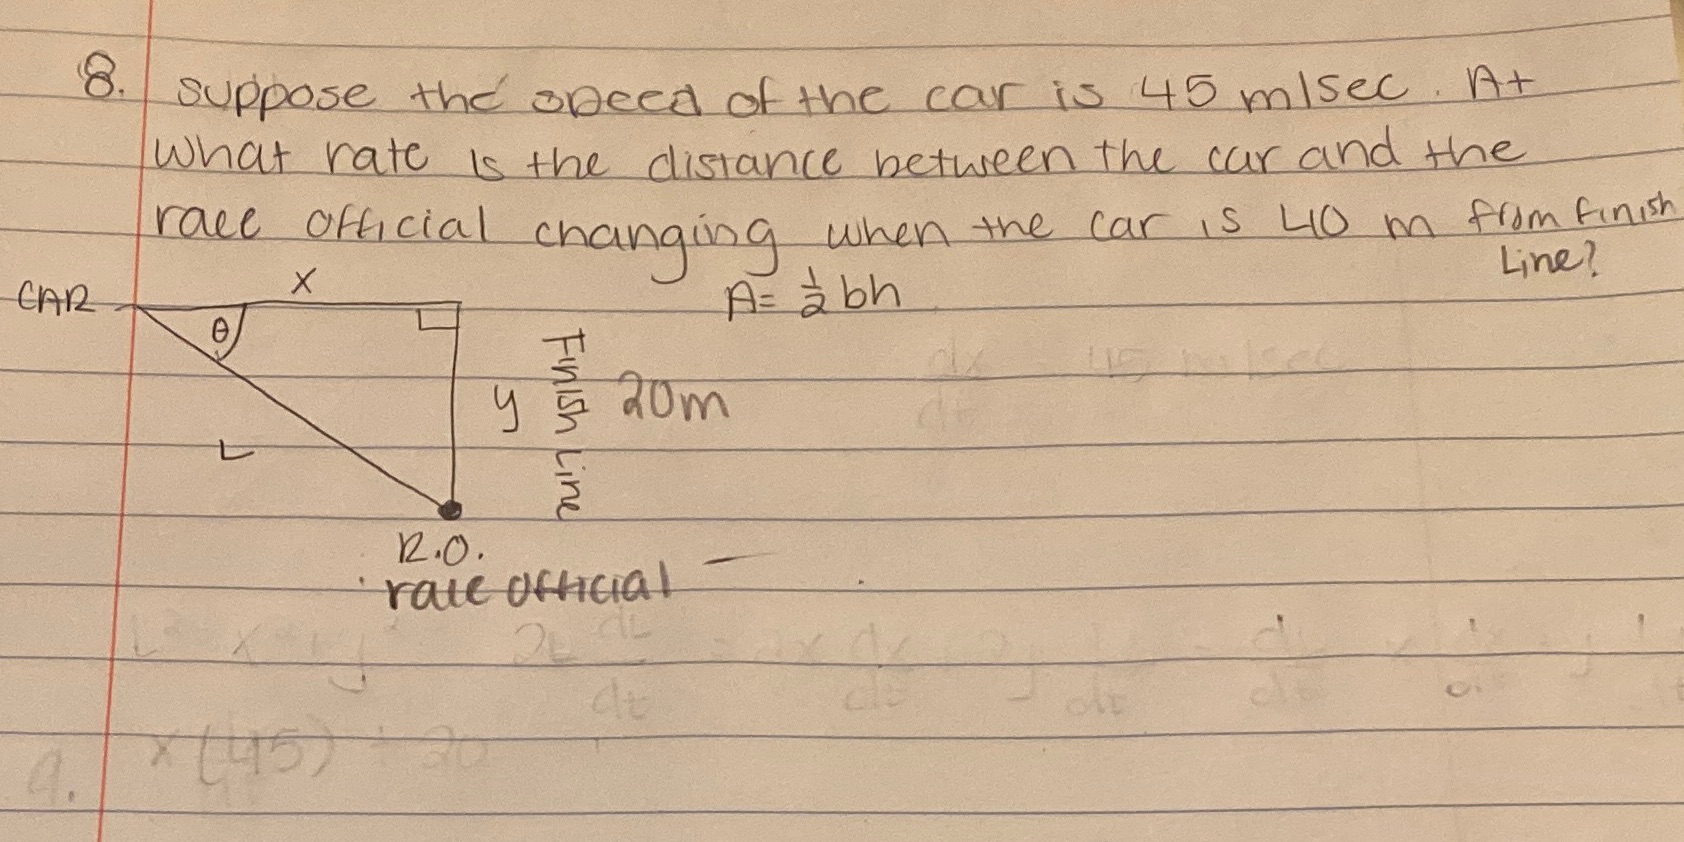 8. suppose the speed of the car is 45 m/sec. At
what rate is the distance between the car and the
race official changing when the car is 40 m from finish
Line?
CAR x A= 1/2 bh
θ
y Finish Line 20m
L
R.O.
race official
dx/dt 45 m/sec
9. x(45) + 20